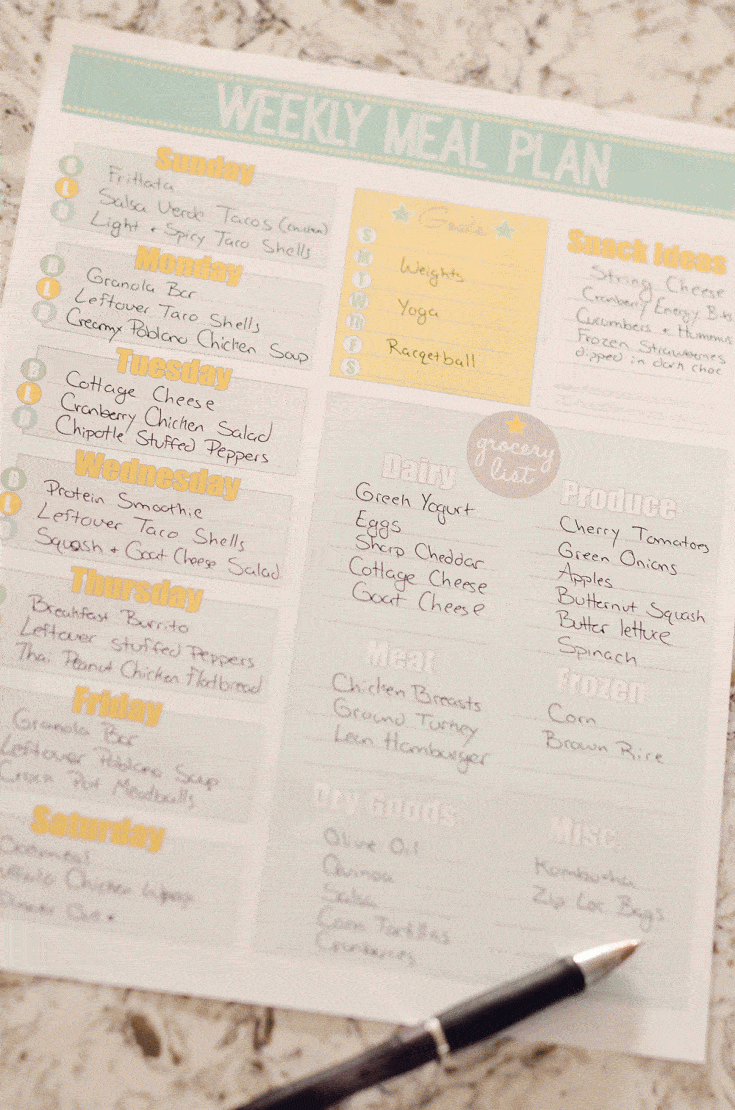 WEEKLY MEAL PLAN
Sunday
B Frittata
L Salsa Verde Tacos (chicken)
D Light + Spicy Taco Shells
Monday
B Granola Bar
L Leftover Taco Shells
D Creamy Poblano Chicken Soup
Tuesday
B Cottage Cheese
L Cranberry Chicken Salad
D Chipotle Stuffed Peppers
Wednesday
B Protein Smoothie
L Leftover Taco Shells
D Squash + Goat Cheese Salad
Thursday
Breakfast Burrito
Leftover Stuffed Peppers
Thai Peanut Chicken Flatbread
Friday
Granola Bar
Leftover Poblano Soup
Crock Pot Meatballs
Saturday
Oatmeal
Chicken
Dinner Out
Goals
S
M
T Weights
W
TH Yoga
F
S Racqetball
Snack Ideas
String Cheese
Cranberry Energy Bites
Cucumbers + Hummus
Frozen Strawberries
dipped in dark choc
grocery
list
Dairy
Greek Yogurt
Eggs
Sharp Cheddar
Cottage Cheese
Goat Cheese
Produce
Cherry Tomatoes
Green Onions
Apples
Butternut Squash
Butter lettuce
Spinach
Meat
Chicken Breasts
Ground Turkey
Lean Hamburger
Frozen
Corn
Brown Rice
Dry Goods
Olive Oil
Quinoa
Salsa
Corn Tortillas
Cranberries
Misc.
Kombucha
Zip Loc Bags